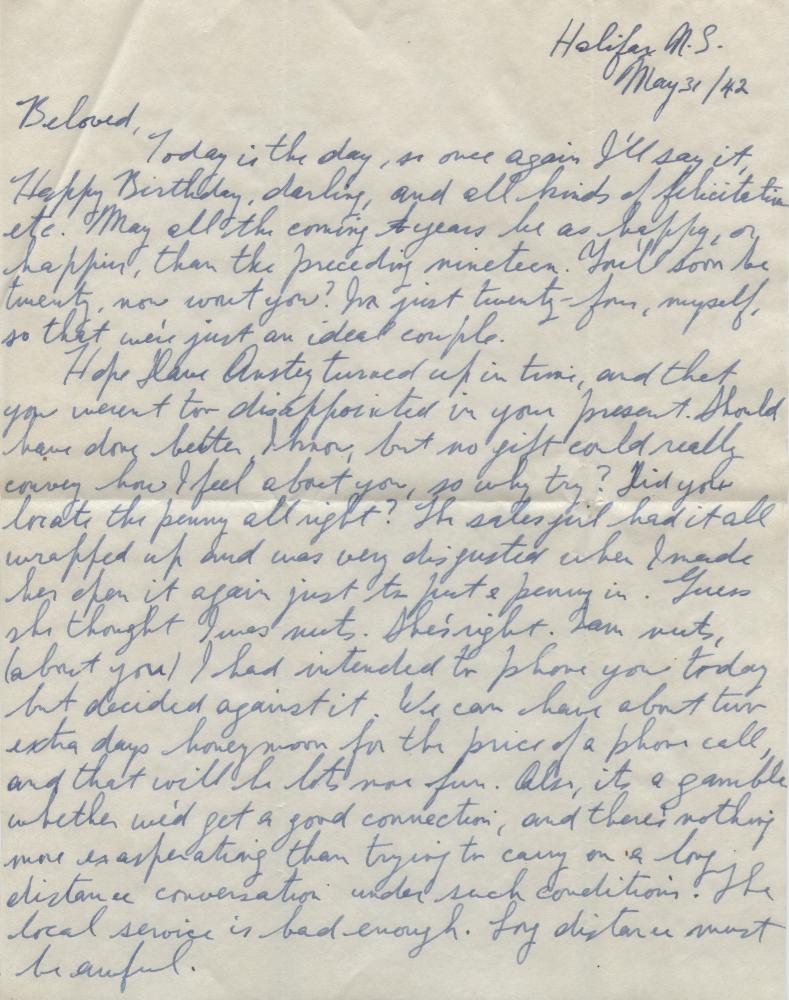 Halifax N.S.
May 31/42
Beloved,
Today is the day, so once again I'll say it,
Happy Birthday, darling, and all kinds of felicitation
etc. May all the coming years be as happy, or
happier, than the preceding nineteen. You'll soon be
twenty, now wont you? I'm just twenty-four, myself,
so that we're just an ideal couple.
Hope Dave Anstey turned up in time, and that
you weren't too disappointed in your present. Should
have done better, I know, but no gift could really
convey how I feel about you, so why try? Did you
locate the penny all right? The salesgirl had it all
wrapped up and was very disgusted when I made
her open it again just to put a penny in. Guess
she thought I was nuts. She's right. I am nuts,
(about you) I had intended to phone you today
but decided against it. We can have about two
extra days honeymoon for the price of a phone call,
and that will be lots more fun. Also, its a gamble
whether we'd get a good connection, and there's nothing
more exasperating than trying to carry on a long
distance conversation under such conditions. The
local service is bad enough. Long distance must
be awful.